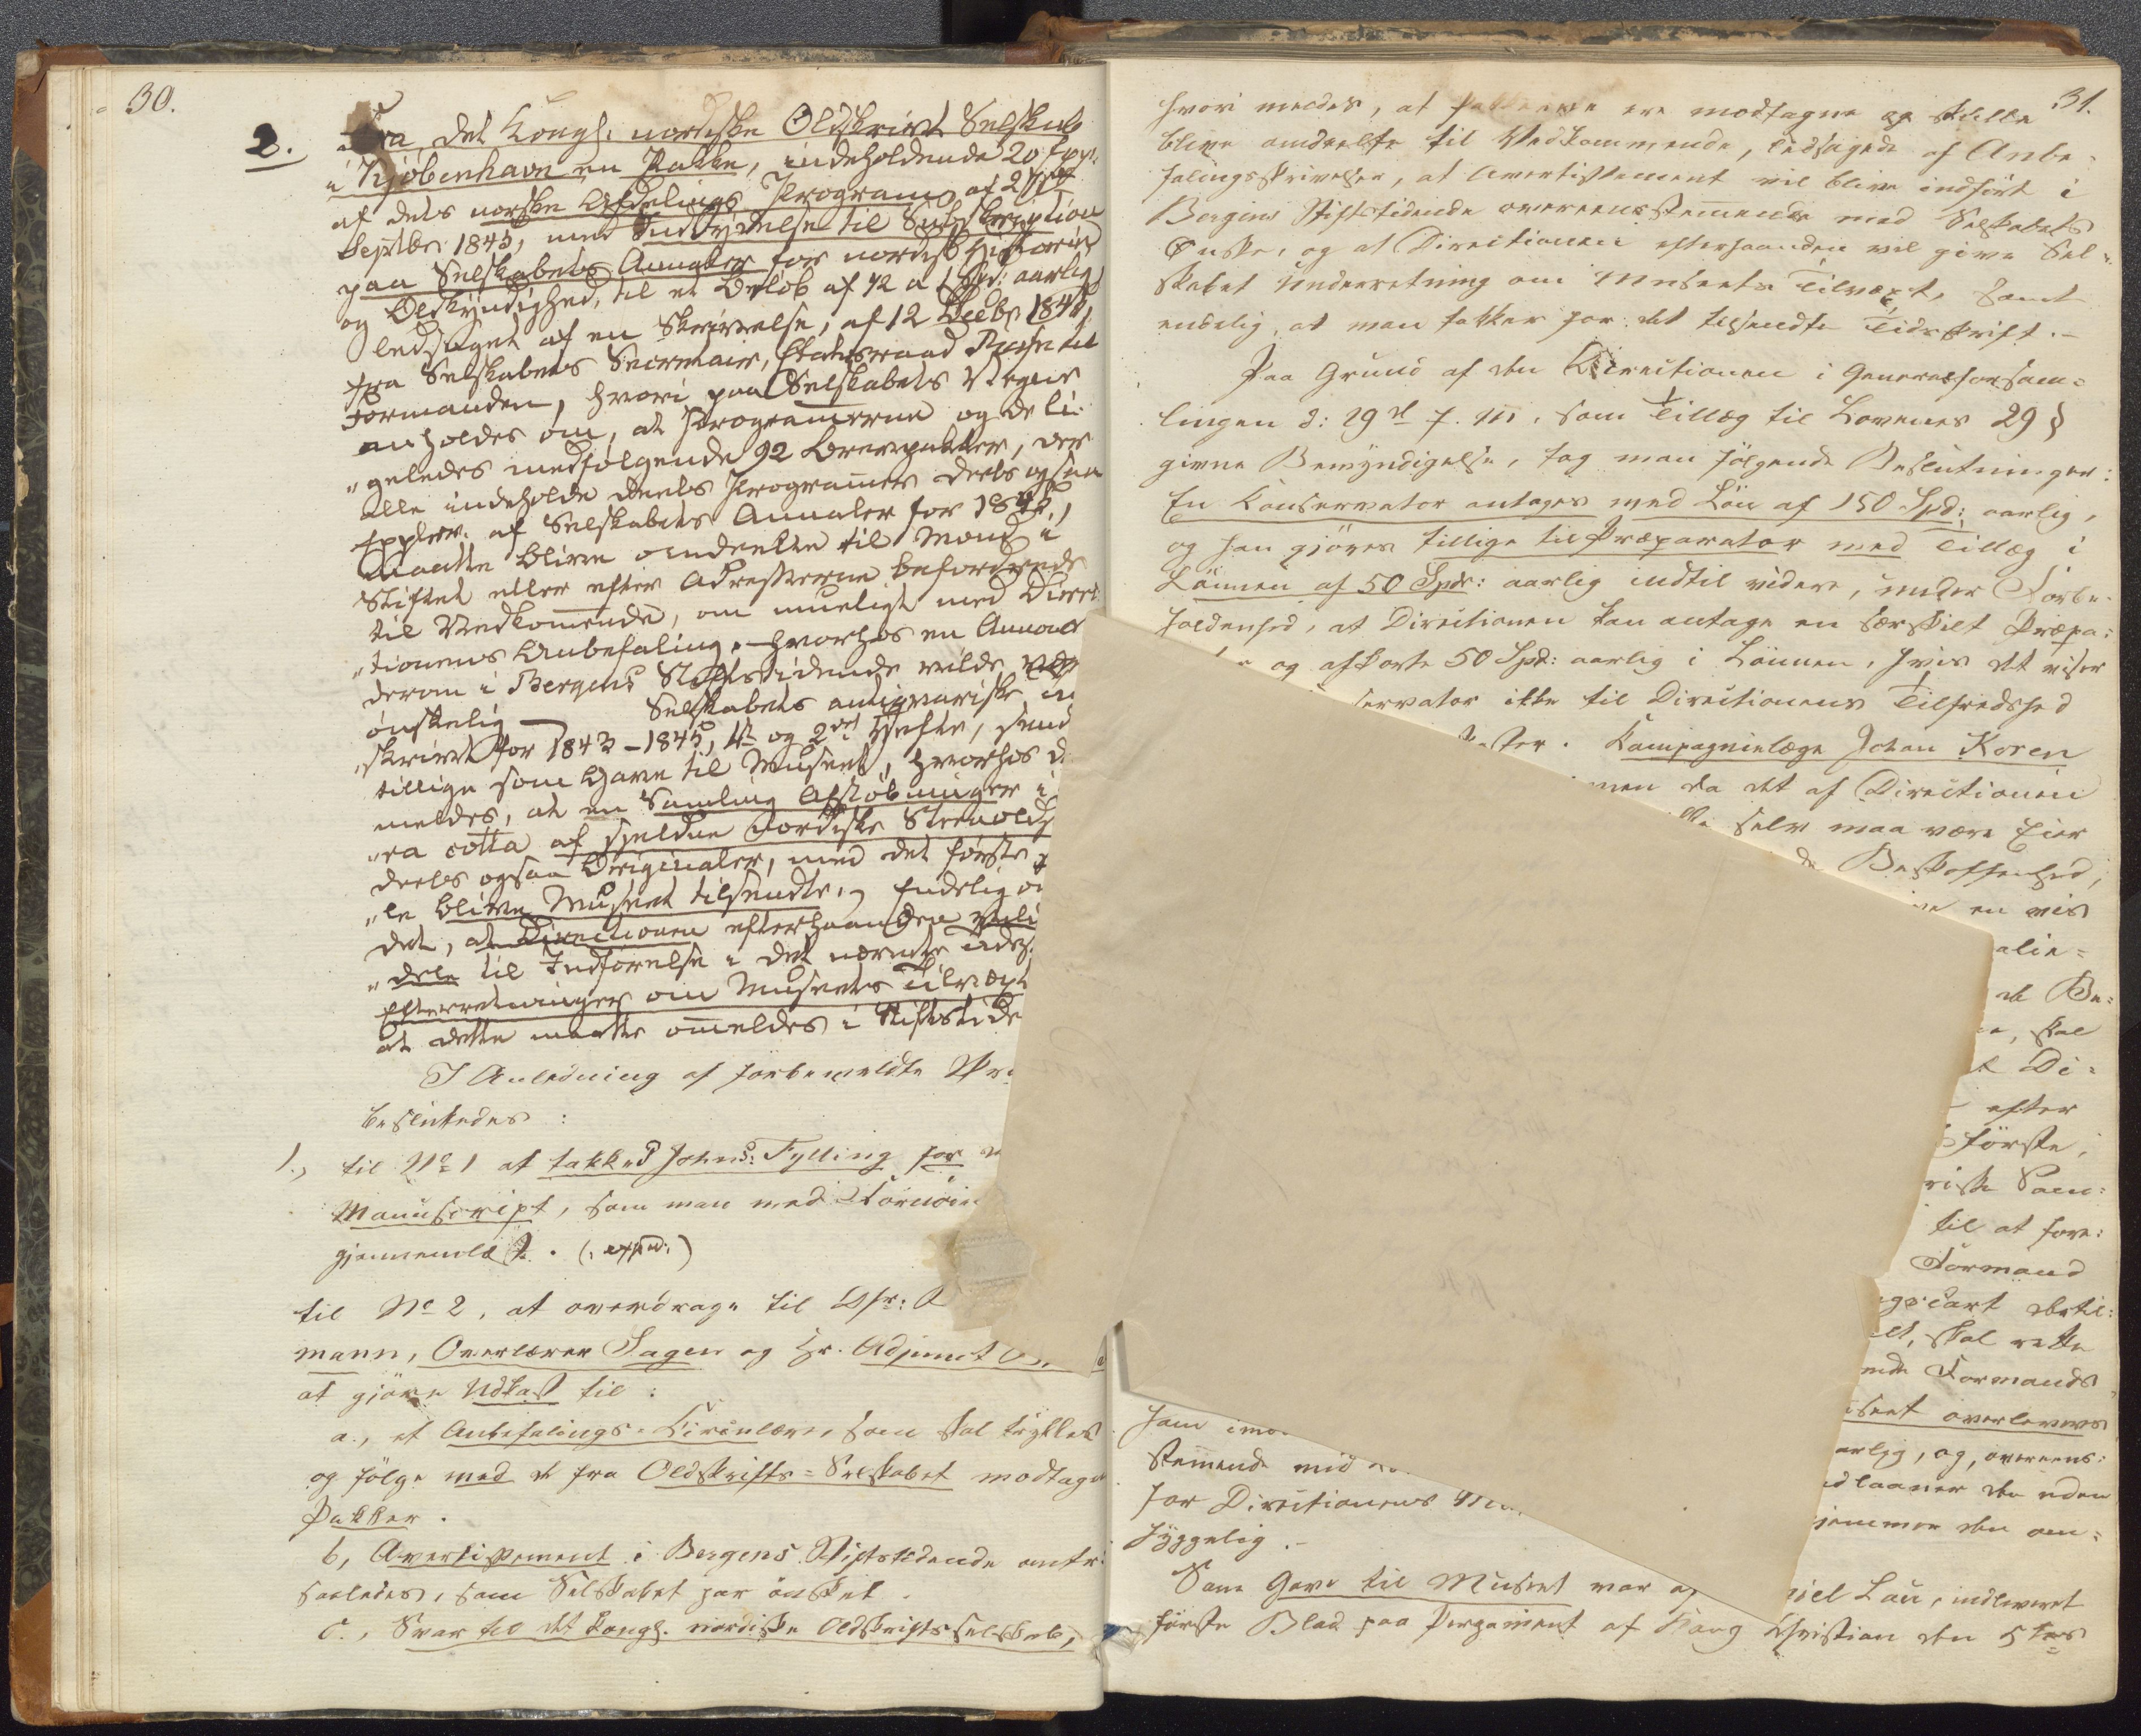 30.
2. Fra det Kongl. nordiske Oldskrivt Selskab
i Kjøbenhavn en Pakke, indeholdende 20 Expl.
af dets norske Afdelings Program af 27de
Septbr 1845, med Indbydelse til Subskription
paa Selskabets Annaler for nordisk Historie
og Oldkyndighed, til et Beløb af 1/2 a 1 Spd: aarlig,
ledsaget af en Skrivelse, af 12 Decbr 1845,
fra Selskabets Secretair, Etatsraad Rafn til
Formanden, hvori paa Selskabets Vegne
anholdes om, at Programerne og de li-
"geledes medfølgende 92 Brevpakker, der
alle indeholde deels Programer deels ogsaa
Expler. af Selskabets Annaler for 1845,
maatte blive omdeelte til Mænd i
Stiftet eller efter Adresserne befordrede
til Vedkomende, om mueligt med Direc-
"tionens Anbefaling, hvorhos en Annonce
derom i Bergens Stiftstidende vilde være
ønskelig — Selskabets antiqvariske
"skrivt for 1843-1845, 1ste og 2det Hefte, send
tillige som Gave til Museet, hvorhos
meldes, at en Samling Afstøbninger i
"ra cotta af sjeldne nordiske Steenolds
deels ogsaa Originaler, med det første
"le blive Museet tilsendte, Endelig
det, at Directionen efterhaanden vil
"dele til Indførelse i det nævnte Tids
Efterretninger om Museets Tilvæxt
at dette maatte omeldes i Stiftstide
I Anledning af forbemeldte
besluttedes :
1., til No 1 at takke Johns: Fylling for
Manuscript, som man med Fornøie
gjennemlæst. (: exped:)
til No 2, at overdrage til Hr:
mann, Overlærer Sagen og Hr. Adjunct
at gjøre Udkast til :
a., et Anbefalings-Circulære, som skal trykkes
og følge med de fra Oldskrifts=Selskabet modtagne
Pakker.
b, Avertissement i Bergens Stiftstidende
saaledes, som Selskabet har ønsket.
c., Svar til det kongl. nordiske Oldskriftsselskab,
31.
hvori meldes, at Pakkerne ere modtagne og skulle
blive omdeelte til Vedkommende, ledsagede af Anbe-
falingsskrivelser, at Avertissement vil blive indført i
Bergens Stiftstidende overeensstemende med Selskabets
Ønske, og at Directionen efterhaanden vil give Sel-
skabet Underretning om Museets Tilvæxt, samt
endelig, at man takker for det tilsendte Tidsskrift.-
Paa Grund af den Directionen i Generalforsam=
lingen d: 29de f. M. som Tillæg til Lovenes 29 §
givne Bemyndigelse, tog man følgende Beslutninger:
En Conservator antages med Løn af 150 Spd: aarlig,
og han gjøres tillige til Præparator med Tillæg i
Lønnen af 50 Spdr: aarlig indtil videre, under Forbe-
holdenhed, at Directionen kan antage en særskilt Præpa=
og afkorte 50 Spd: aarlig i Lønnen, hvis det viser
servator ikke til Directionens Tilfredshed
Kompagnielæge Johan Koren
men da det af Directionen
selv maa være Eier
Beskaffenhed,
en vis
alie=
de Be=
skal
Di=
efter
første,
riske Sam=
til at fore=
Formand
skal rette
Formands
Museet overleveres
aarlig, og, overeens=
udlaaner den uden
hjemmer den om=
ham imo
stemende med
for Directionens
hyggelig.-
Som Gave til Museet var af niel Lau, indleveret
første Blad paa Pergament af Kong Christian den 5tes